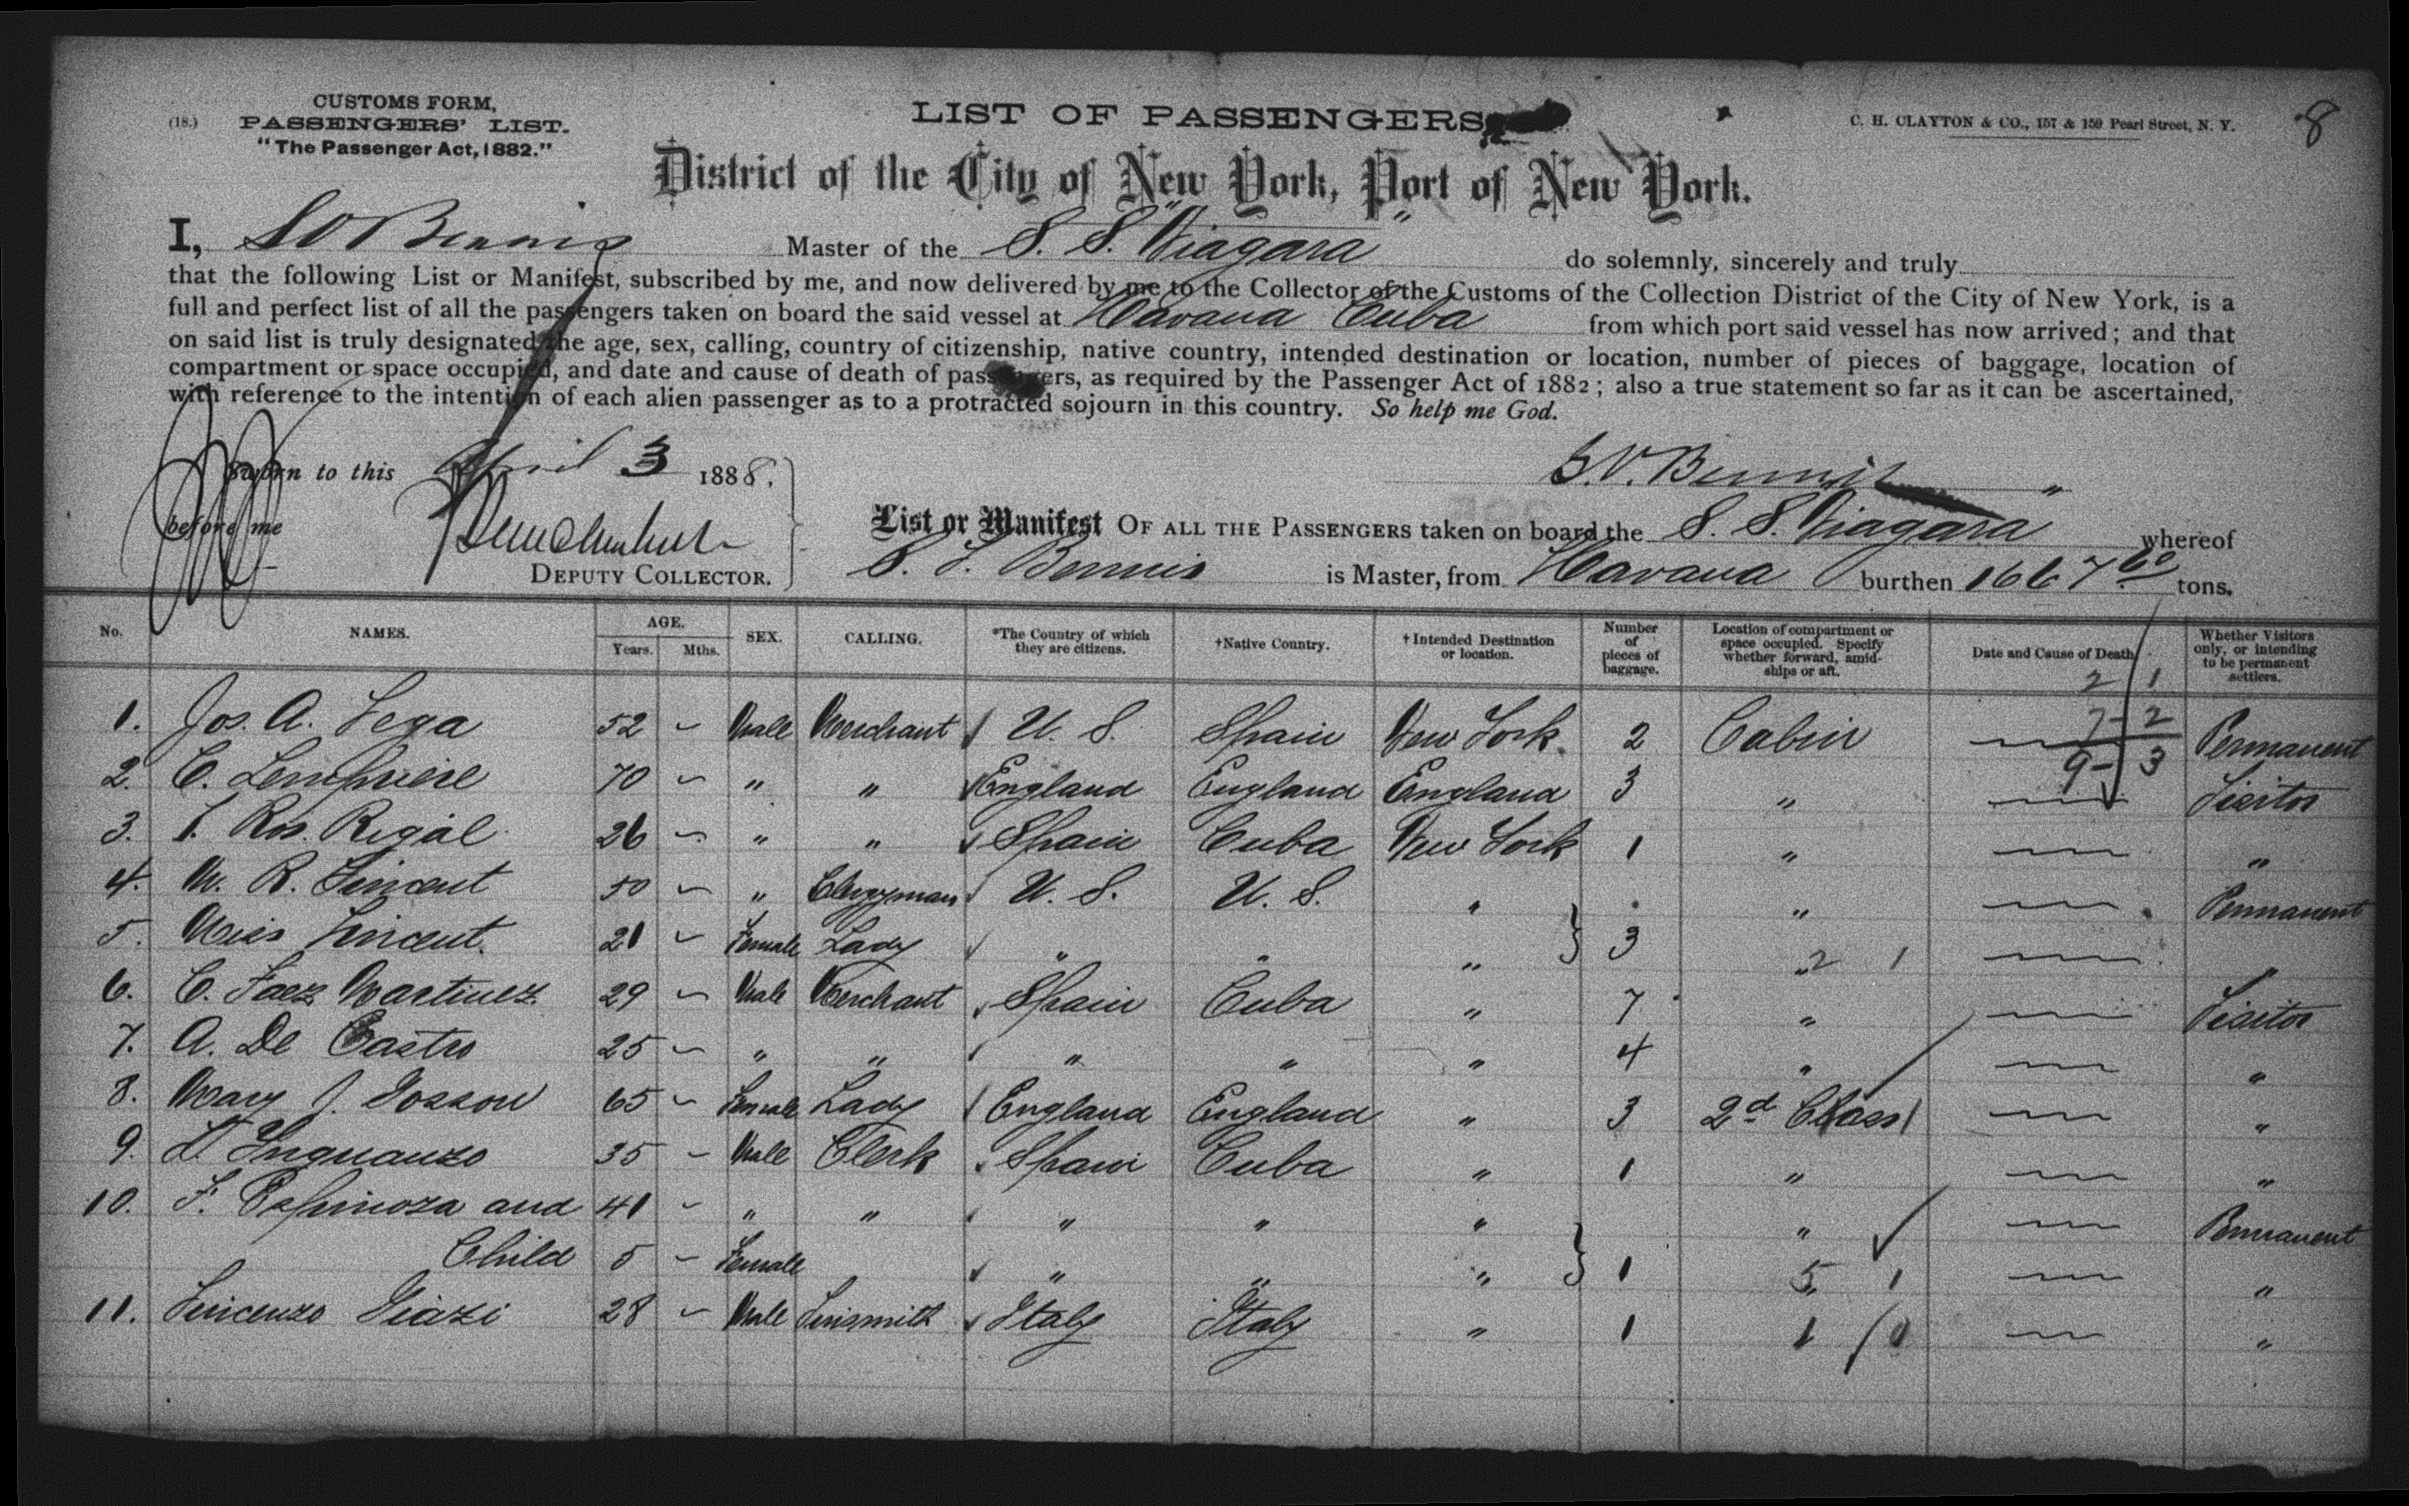 (18.)
CUSTOMS FORM,
PASSENGERS' LIST.
"The Passenger Act, 1882."
LIST OF PASSENGERS
C. H. CLAYTON & CO., 157 & 159 Pearl Street, N. Y.
8
District of the City of New York, Port of New York.
I, Bennis Master of the S. S. "Niagara" do solemnly, sincerely and truly
that the following List or Manifest, subscribed by me, and now delivered by me to the Collector of the Customs of the Collection District of the City of New York, is a
full and perfect list of all the passengers taken on board the said vessel at Havana Cuba from which port said vessel has now arrived; and that
on said list is truly designated the age, sex, calling, country of citizenship, native country, intended destination or location, number of pieces of baggage, location of
compartment or space occupied, and date and cause of death of passengers, as required by the Passenger Act of 1882; also a true statement so far as it can be ascertained,
with reference to the intention of each alien passenger as to a protracted sojourn in this country. So help me God.
Sworn to this April 3 1888.
before me
DEPUTY COLLECTOR.
Bennis
List or Manifest OF ALL THE PASSENGERS taken on board the S. S. Niagara" whereof
Bennis is Master, from Havana burthen 1667 60 tons.
No. NAMES. AGE. Years. Mths. SEX. CALLING. *The Country of which they are citizens. †Native Country. †Intended Destination or location. Number of pieces of baggage. Location of compartment or space occupied. Specify whether forward, amidships or aft. Date and Cause of Death. Whether Visitors only, or intending to be permanent settlers.
2 1
7 - 2
9 - 3
1. Jos. A. Vega 52 Male Merchant U. S. Spain New York. 2 Cabin Permanent
2. C. Lempriere 70 " " England England England 3 " Visitor
3. Ros. Rigal 26 " " Spain Cuba New York 1 " "
4. M. R. Vincent 50 " Clergyman U. S. U. S. " " Permanent
5. Miss Vincent. 21 Female Lady " " " 3 " 2 1 "
6. C. Faez Martinez 29 Male Merchant Spain Cuba " 7 " Visitor
7. A. De Castro 25 " " " " " 4 " "
8. Mary J. Gosson 65 Female Lady England England " 3 2d Class "
9. Inguanzo 35 Male Clerk Spain Cuba " 1 " "
10. F. Espinoza and 41 " " " " " " Permanent
Child 5 Female " " " 1 5 1 "
11. Vincenzo Giazi 28 Male Tinsmith Italy Italy " 1 1 "